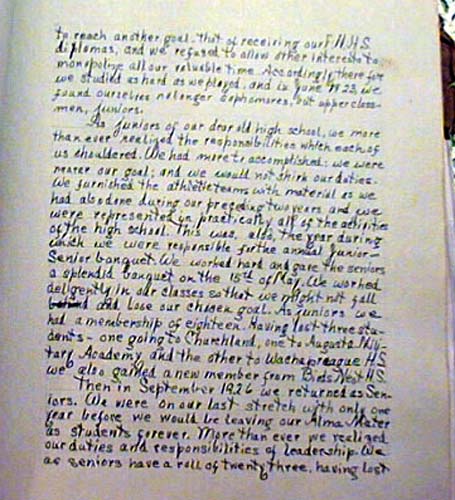 to reach another goal, that of receiving our N.H.S.
diplomas, and we refused to allow other interests to
monopolize all our valuable time. Accordingly, therefore
we studied as hard as we played, and in June 1925, we
found ourselves no longer Sophomores, but upper class-
men, juniors.
As juniors of our dear old high school, we more
than ever realized the responsibilities which each of
us shouldered. We had more to accomplished; we were
nearer our goal; and we would not shirk our duties.
We furnished the athletic teams with material as we
had also done during our preceding two years and we
were represented in practically all of the activities
of the high school. This was, also, the year during
which we were responsible for the annual Junior-
Senior banquet. We worked hard and gave the seniors
a splendid banquet on the 15th of May. We worked
deligently in our classes so that we might not fall
and lose our chosen goal. As juniors we
had a membership of eighteen. Having lost three stu-
dents - one going to Churchland, one to Augusta Mili-
tary Academy, and the other to Wachapreague H.S.
we also gained a new member from Birds Nest H.S.
Then in September 1926 we returned as Sen-
iors. We were on our last stretch with only one
year before we would be leaving our Alma Mater
as students forever. More than ever we realized
our duties and responsibilities of leadership. We
as seniors have a roll of twenty three, having lost